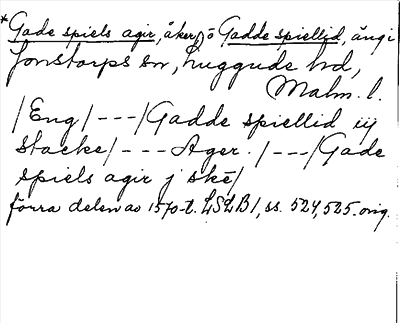 *Gade spiels agir, åker, o Gadde spiellid, äng i
Jonstorps sn, Luggude hd,
Malm. l.
/Eng/---/Gadde spiellid iij
stacke/---Ager./---/Gade
spiels agir j skē/
förra delen av 1570-t. LSLB1, ss. 524, 525. orig.